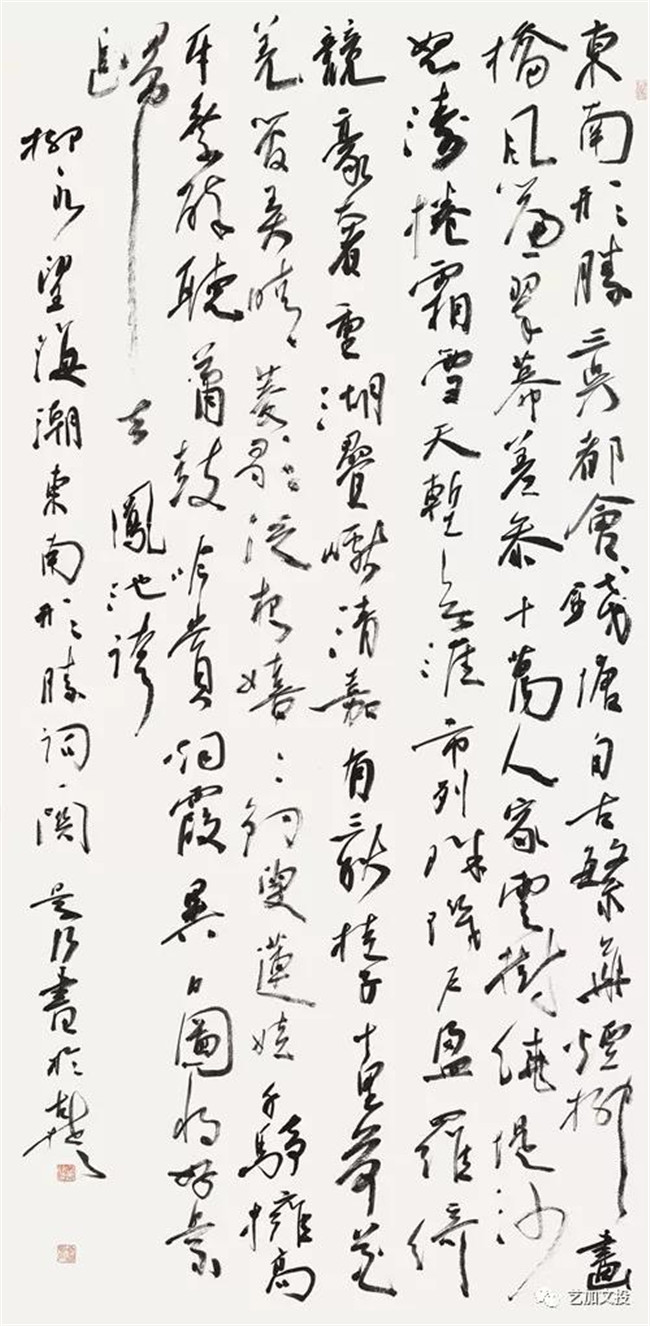 東南形勝三吳都會錢塘自古繁華煙柳畫
橋風簾翠幕差參十萬人家雲樹繞堤沙
怒濤捲霜雪天塹無涯市列珠璣戶盈羅綺
競豪奢重湖疊巘清嘉有三秋桂子十里荷花
羌管弄晴菱歌泛夜嬉〻釣叟蓮娃千騎擁高
牙乘醉聽簫鼓吟賞烟霞異日圖將好景
歸去鳳池誇
柳永望海潮東南形勝詞一闋 書於
艺加文投